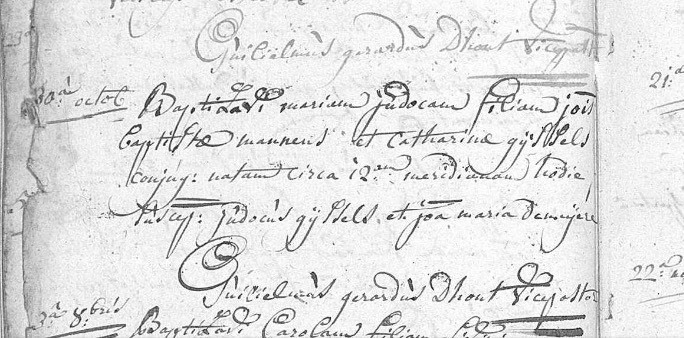 Guilielmus gerardus Dhont Vicepast
30.a octob Baptisavi mariam judocam filiam jois
baptistæ mannens et catharinæ gyssels
conjug: natam circa 12.am meridianam hodie
suscep: judocus gyssels et joa maria Demeyere
Guilielmus gerardus Dhont Vicepastor
Baptisavi Carolam filiam
21.a
22.a